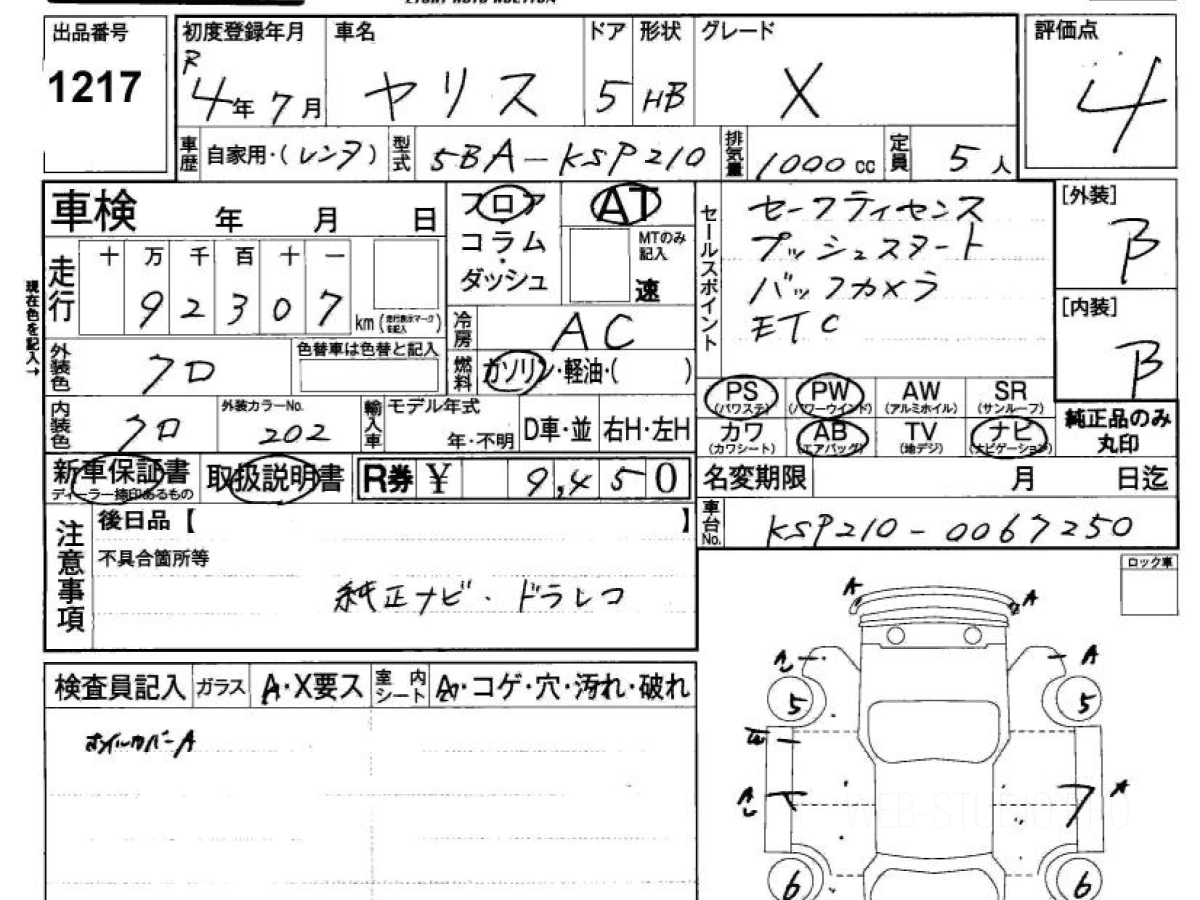 LIGHT AUTO AUCTION
出品番号
1217
初度登録年月
R
4年7月
車名
ヤリス
ドア
5
形状
HB
グレード
X
評価点
4
車歴
自家用・(レンタ)
型式
5BA-KSP210
排気量
1000cc
定員
5人
車検 年 月 日
フロア
コラム
・
ダッシュ
AT
MTのみ
記入
速
セールスポイント
セーフティセンス
プッシュスタート
バックカメラ
ETC
[外装]
B
[内装]
B
現在色を記入→
走行
十 万 千 百 十 一
9 2 3 0 7
km
冷房
AC
外装色
クロ
色替車は色替と記入
燃料
ガソリン・軽油・( )
PS
(パワステ)
PW
(パワーウインド)
AW
(アルミホイル)
SR
(サンルーフ)
カワ
(カワシート)
AB
(エアバッグ)
TV
(地デジ)
ナビ
(ナビゲーション)
純正品のみ
丸印
内装色
クロ
外装カラーNo.
202
輸入車
モデル年式
年・不明
D車・並
右H・左H
新車保証書
ディーラー捺印あるもの
取扱説明書
R券 ¥ 9,450
名変期限 月 日迄
車台No.
KSP210-0067250
注意事項
後日品【 】
不具合箇所等
純正ナビ・ドラレコ
ロック車
検査員記入
ガラス
A・X要ス
室内シート
A・コゲ・穴・汚れ・破れ
ホイルカバーA
A
A
A
A
5
5
A
A
6
6
WEB-STUDIO.PRO